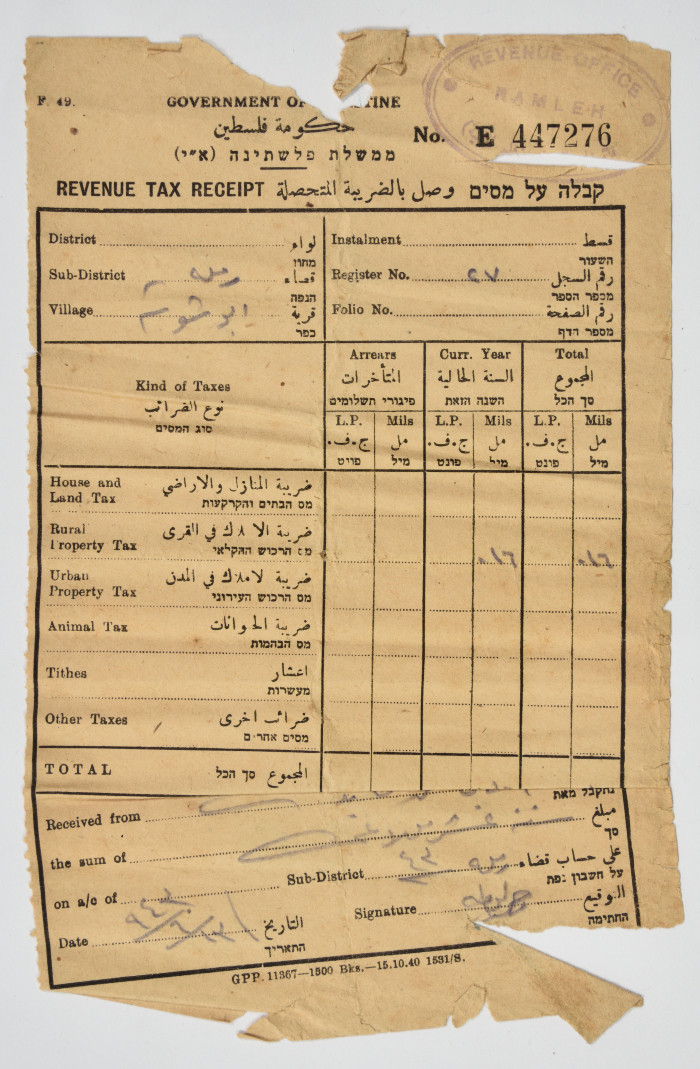 REVENUE OFFICE
RAMLEH
F. 49.
GOVERNMENT OF TINE
حكومة فلسطين
No. E 447276
ממשלת פלשתינה (א״י)
REVENUE TAX RECEIPT وصل بالضريبة المتحصلة קבלה על מסים
District لواء
מחוז
Sub-District رمله قضاء
הנפה
Village ابو شوشه قرية
כפר
Instalment قسط
השעור
Register No. ٢٧ رقم السجل
מספר הספר
Folio No. رقم الصفحة
מספר הדף
Kind of Taxes
نوع الضرائب
סוג המסים
Arrears Curr. Year Total
المتأخرات السنة الحالية المجموع
פיגורי תשלומים השנה הזאת סך הכל
L.P. Mils L.P. Mils L.P. Mils
ج.ف. مل ج.ف. مل ج.ف. مل
פונט מיל פונט מיל פונט מיל
House and ضريبة المنازل والاراضي
Land Tax מס הבתים והקרקעות
Rural ضريبة الاملاك في القرى
Property Tax מס הרכוש החקלאי
٠١٦ ٠١٦
Urban ضريبة الاملاك في المدن
Property Tax מס הרכוש העירוני
Animal Tax ضريبة الحيوانات
מס הבהמות
Tithes اعشار
מעשרות
Other Taxes ضرائب اخرى
מסים אחרים
TOTAL المجموع סך הכל
נתקבל מאת
Received from
مبلغ
the sum of סך
on a/c of Sub-District رمله على حساب قضاء
על חשבון נפת
Date التاريخ Signature التوقيع
התאריך החתימה
GPP. 11367—1500 Bks.—15.10.40 1531/S.